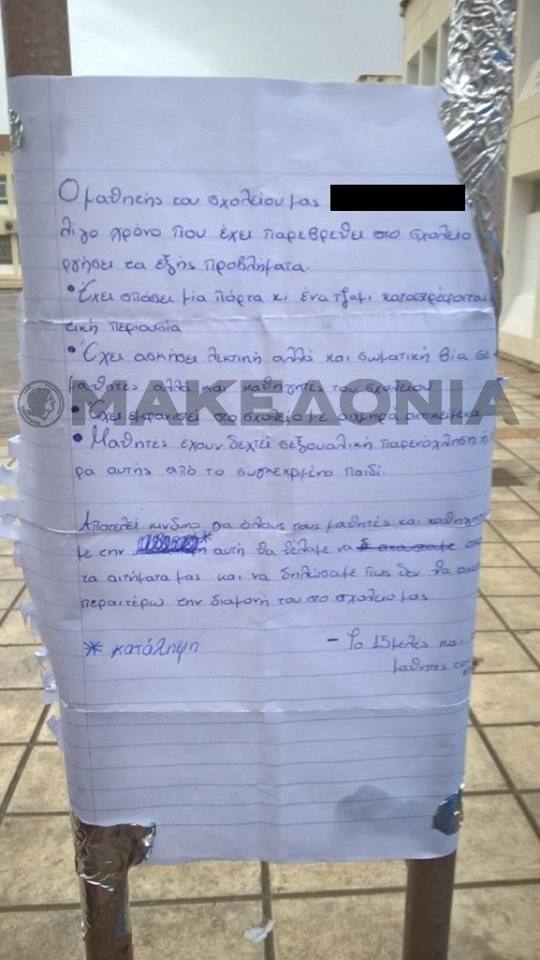 Ο μαθητής του σχολείου μας
λίγο χρόνο που έχει παρεβρεθεί στο σχολείο
ργήσει τα εξής προβλήματα.
• Έχει σπάσει μία πόρτα κι ένα τζάμι καταστρέφοντα
τική περιουσία
• Έχει ασκήσει λεκτική αλλά και σωματική βία σε
μαθητές αλλά και καθηγητές του σχολείου
ΜΑΚΕΔΟΝΙΑ
• Έχει εμφανιστεί στο σχολείο με αιχμηρά αντικείμενα
• Μαθητές έχουν δεχτεί σεξουαλική παρενόχληση ή
ρα αυτής από το συγκεκριμένο παιδί.
Αποτελεί κίνδυνο για όλους τους μαθητές και καθηγητ
με την * αυτή θα θέλαμε να
τα αιτήματα μας και να δηλώσαμε πως δεν θα
περαιτέρω την διαμονή του στο σχολείο μας
* κατάληψη
- Το 15μελές και
μαθητές το